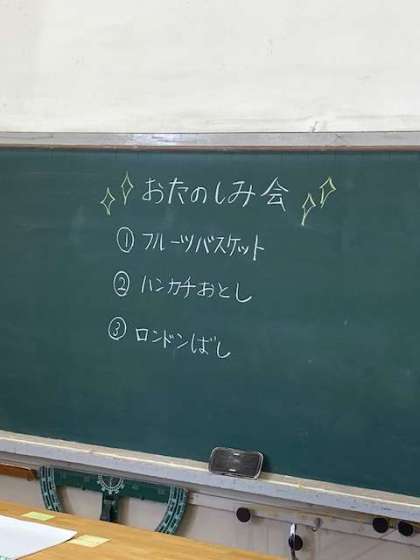 おたのしみ会
① フルーツバスケット
② ハンカチおとし
③ ロンドンばし